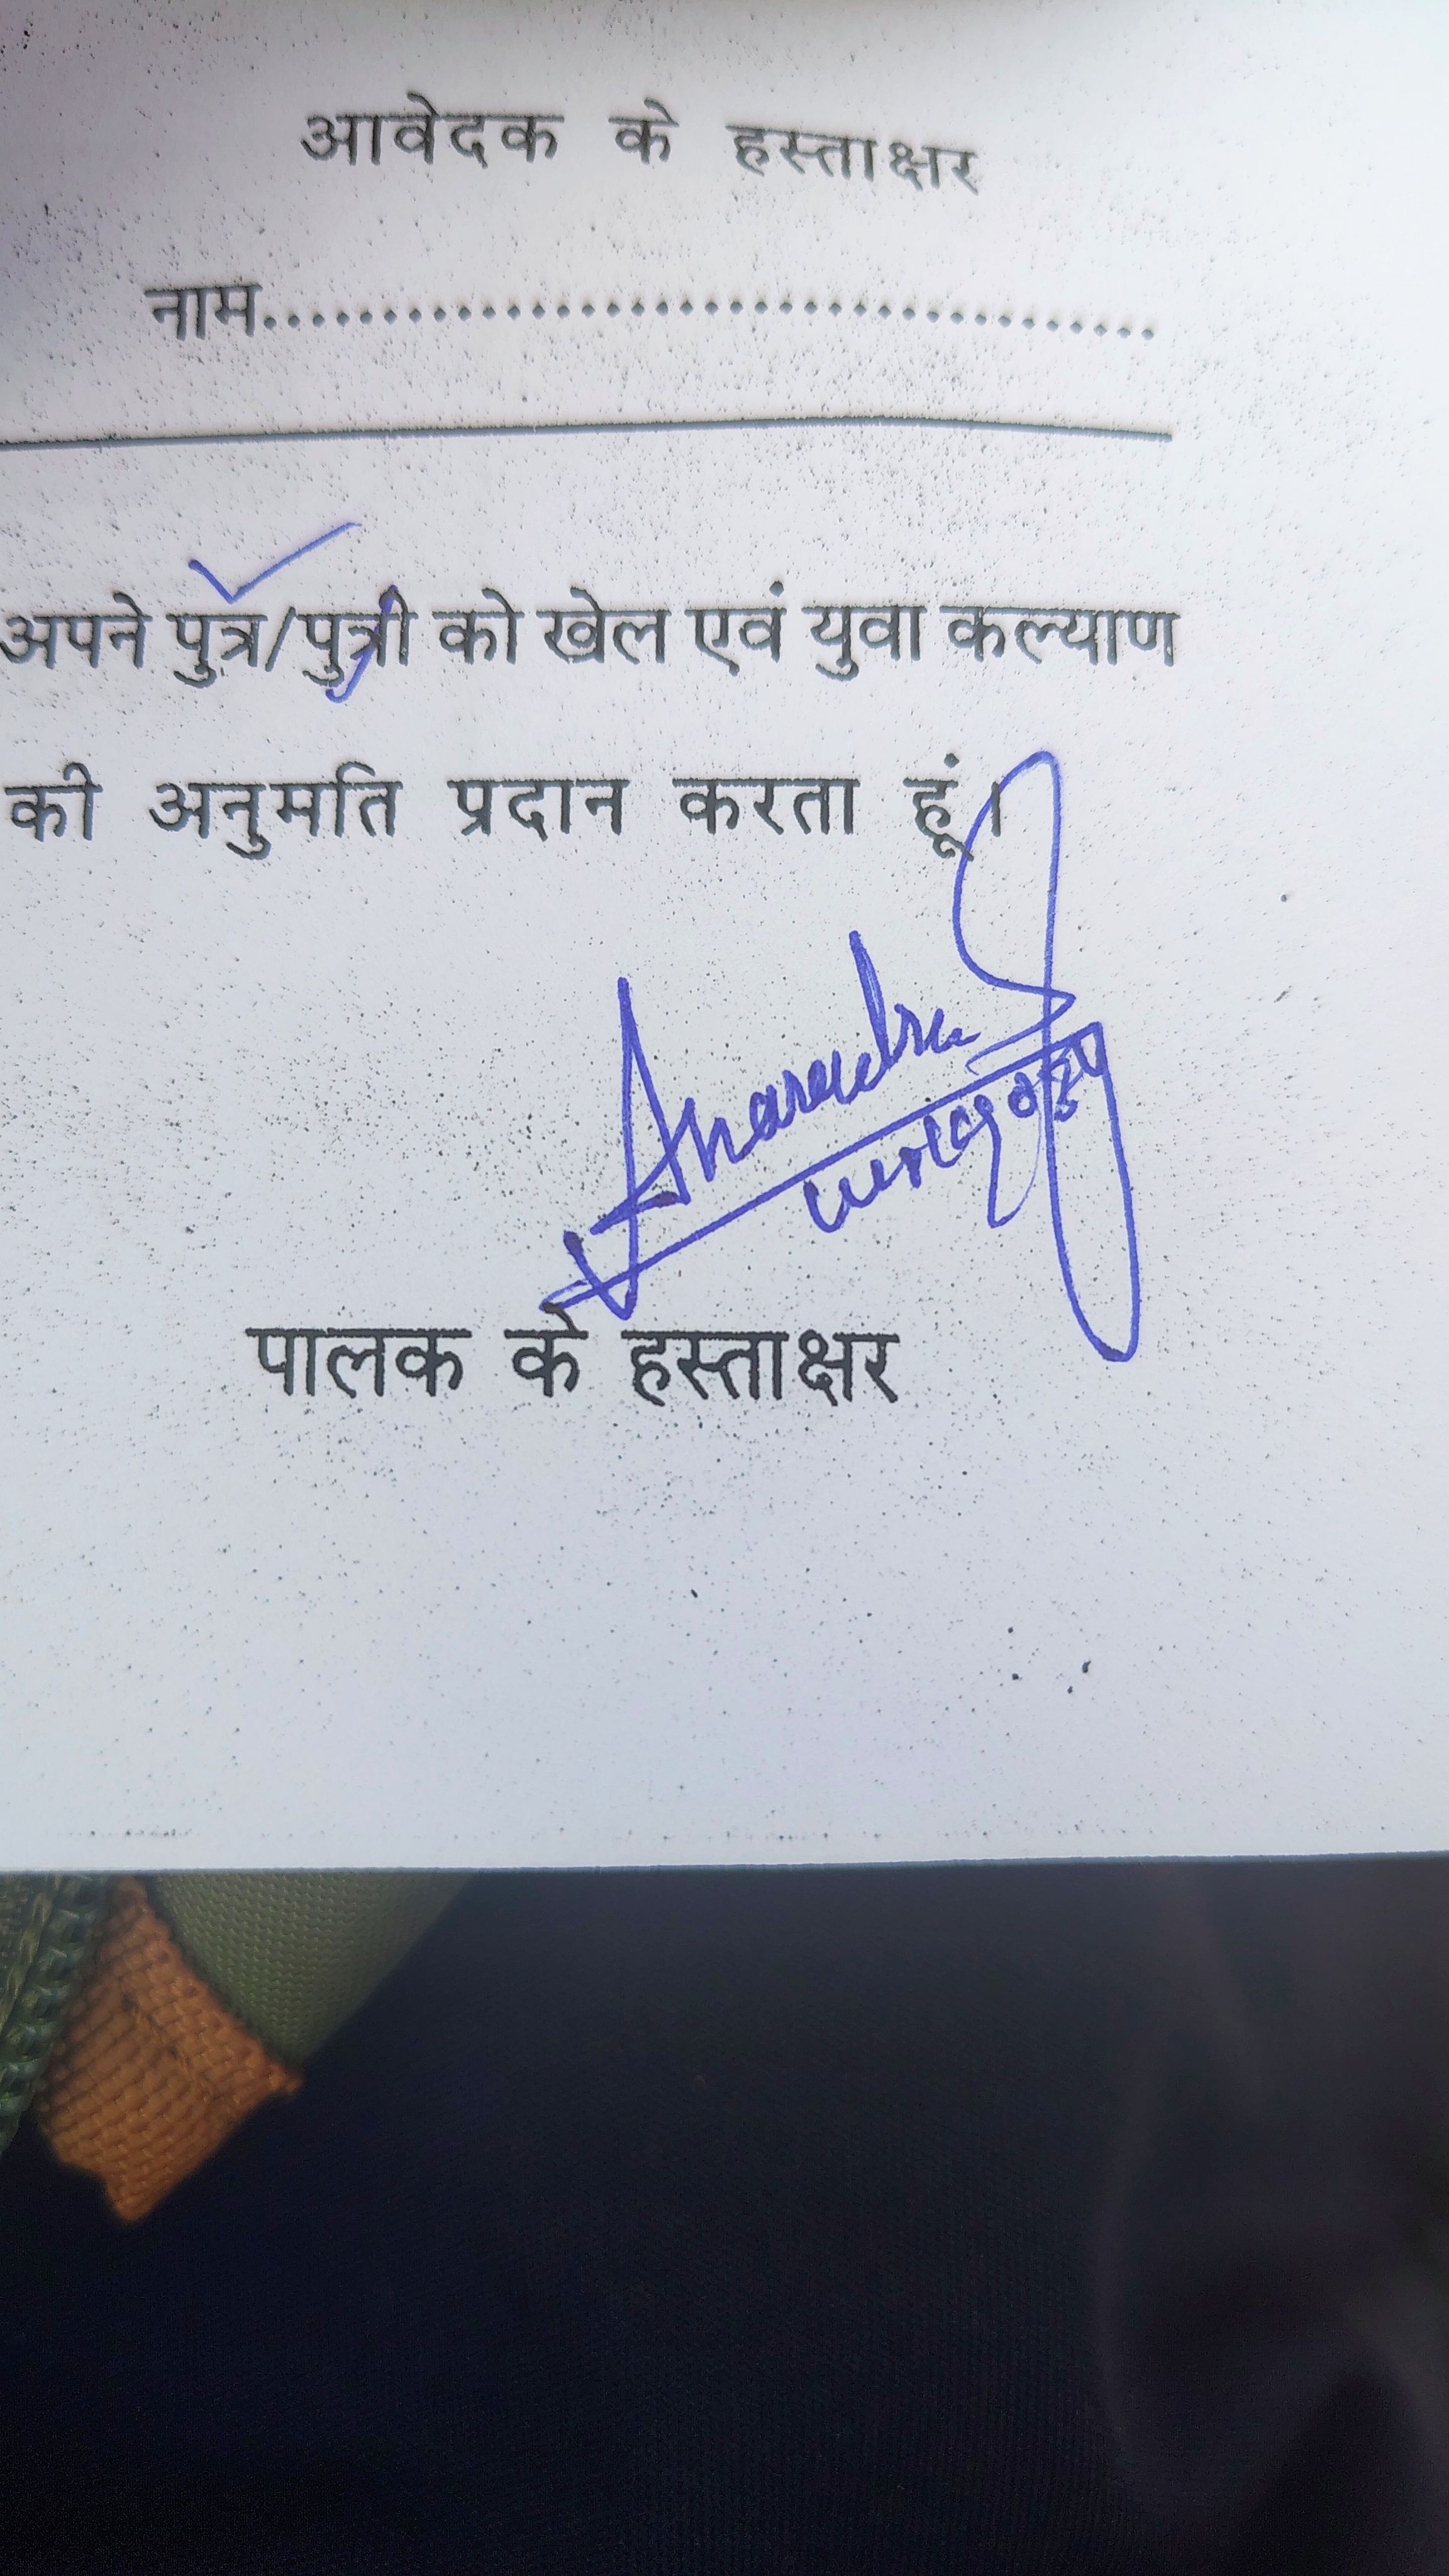 आवेदक के हस्ताक्षर
नाम.......................................
अपने पुत्र/पुत्री को खेल एवं युवा कल्याण
की अनुमति प्रदान करता हूं।
पालक के हस्ताक्षर